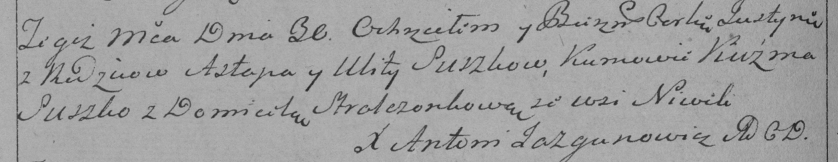 Tegiż Mca Dnia 30. Ochrzciłem y Bierzm Corkę Justynę
z Rodzicow Astapa y Ulity Suszkow, Kumowie Kuźma
Suszko z Domicelą Stralczonkową ze wsi Niwili
X Antoni Łazgunowicz